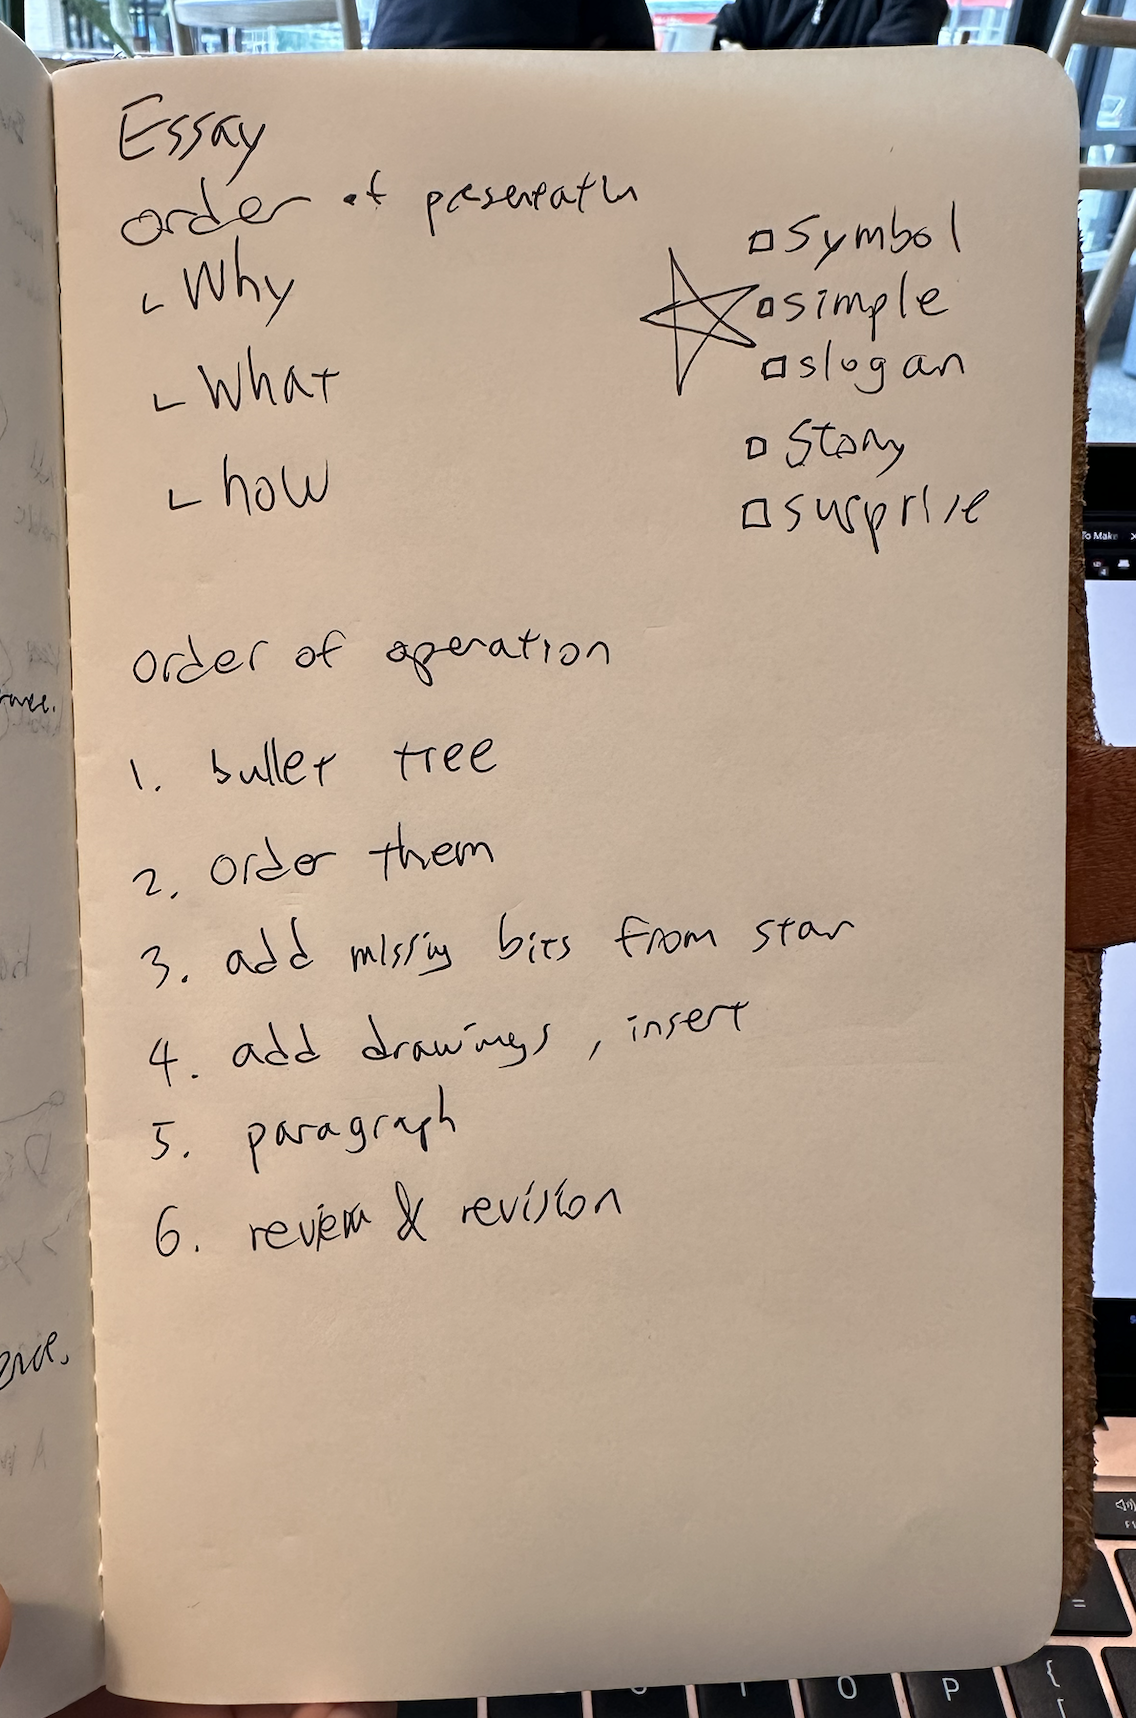 Essay
order of presentation
Why
What
how
symbol
simple
slogan
story
surprise
order of operation
1. bullet tree
2. order them
3. add missing bits from star
4. add drawings, insert
5. paragraph
6. review & revision
ence.
To Make
O
P
{
[
=